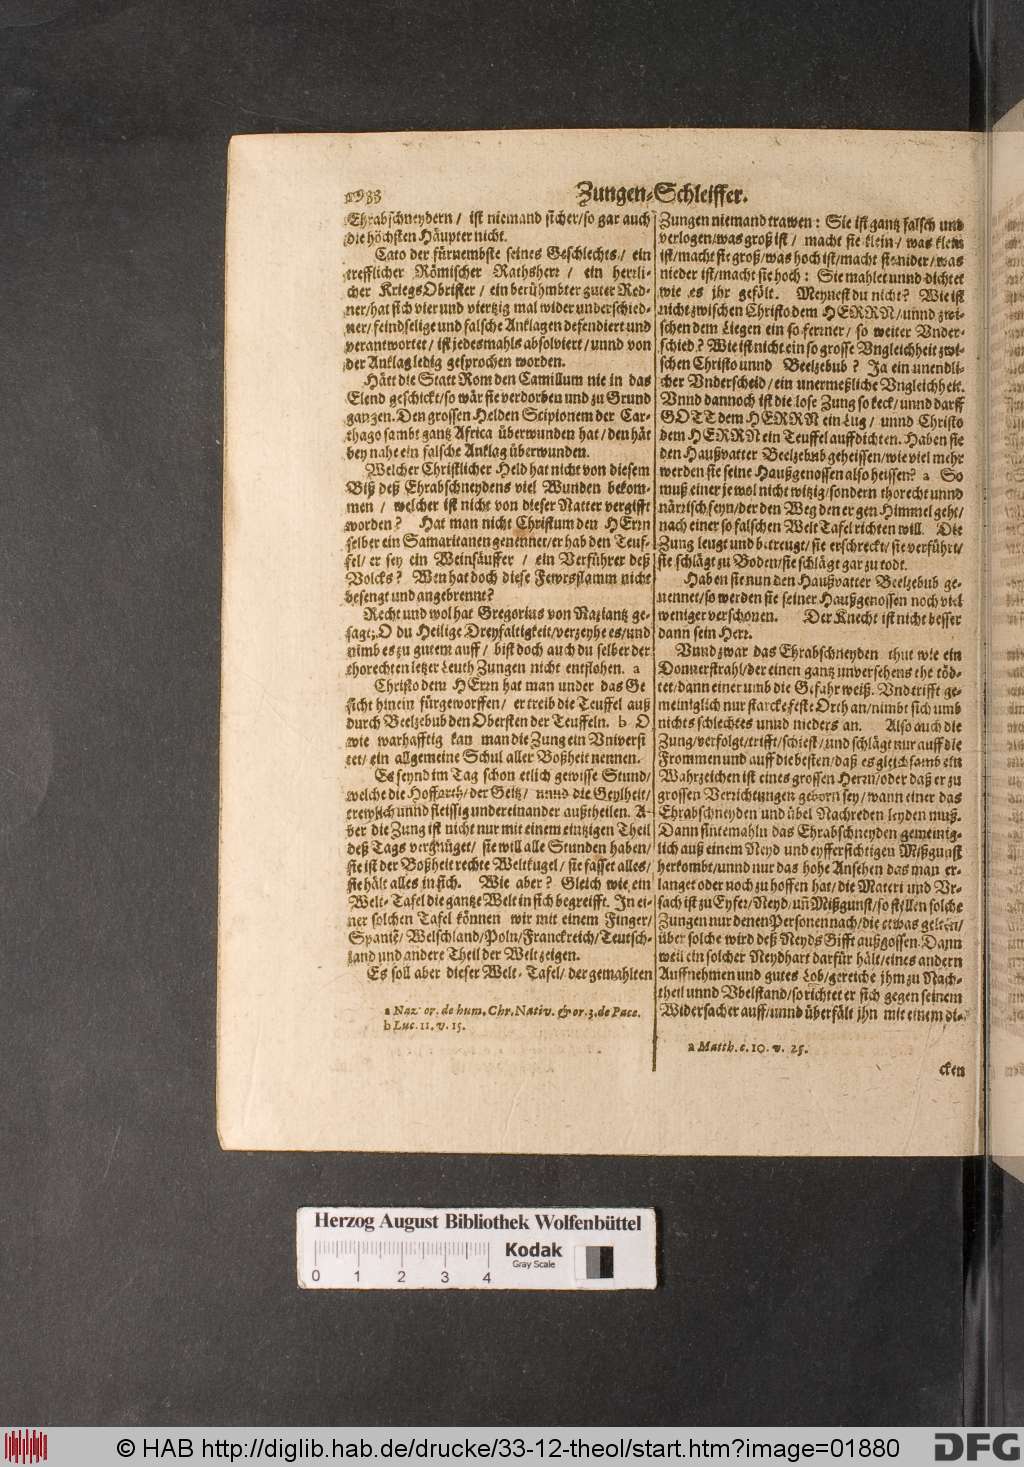 Zungen-Schleiffer.
Ehrabschneydern / ist niemand sicher/so gar auch
die höchsten Häupter nicht.
Cato der fürnembste seines Geschlechts / ein
trefflicher Römischer Rathsherr / ein herrli-
cher KriegsObrister / ein berühmbter guter Red-
ner/hat sich vier und viertzig mal wider underschied-
ner/feindselige und falsche Anklagen defendiert und
verantwortet / ist jedesmahls absolviert/ unnd von
der Anklag ledig gesprochen worden.
Hätt die Statt Rom den Camillum nie in das
Elend geschickt/so wär sie verdorben und zu Grund
gangen. Den grossen Helden Scipionem der Car-
thago sambt gantz Africa überwunden hat/den hät
bey nahe ein falsche Anklag überwunden.
Welcher Christlicher Held hat nicht von diesem
Biß deß Ehrabschneydens viel Wunden bekom-
men / welcher ist nicht von dieser Natter vergifft
worden? Hat man nicht Christum den HErrn
selber ein Samaritanen genennet/er hab den Teuf-
fel/ er sey ein Weinsäuffer / ein Verführer deß
Volcks? Wen hat doch diese Fewrsflamm nicht
besengt und angebrennt?
Recht und wol hat Gregorius von Nazianz ge-
sagt; O du Heilige Dreyfaltigkeit/verzeyhe es/und
nimb es zu gutem auff / bist doch auch du selber der
thorechten letzer Leuth Zungen nicht entflohen. a
Christo dem HErrn hat man under das Ge
sicht hinein fürgeworffen/ er treib die Teuffel auß
durch Beelzebub den Obersten der Teuffeln. b O
wie warhafftig kan man die Zung ein Vniversi
tet/ ein allgemeine Schul aller Boßheit nennen.
Es seynd im Tag schon etlich gewisse Stund/
welche die Hoffarth/der Geitz/ unnd die Geylheit/
trewlich unnd fleissig undereinander außtheilen. A-
ber die Zung ist nicht nur mit einem eintzigen Theil
deß Tags vergnüget/ sie will alle Stunden haben/
sie ist der Boßheit rechte Weltkugel/ sie fasset alles/
sie hält alles in sich. Wie aber? Gleich wie ein
Welt-Tafel die gantze Welt in sich begreifft. In ei-
ner solchen Tafel können wir mit einem Finger/
Spaniẽ/ Welschland/Poln/Franckreich/Teutsch-
land und andere Theil der Welt zeigen.
Es soll aber dieser Welt-Tafel/ der gemahlten
a Naz. or. de hum. Chr. Nativ. & or. 3. de Pace.
b Luc. 11. v. 15.
Zungen niemand trawen: Sie ist gantz falsch und
verlogen/was groß ist / macht sie klein / was klein
ist/macht sie groß/was hoch ist/macht sie nider/was
nieder ist/macht sie hoch: Sie mahlet unnd dichtet
wie es jhr gefält. Meynest du nicht? Wie ist
nicht zwischen Christo dem HERRN/unnd zwi-
schen dem Liegen ein so ferrner/ so weiter Vnder-
schied? Wie ist nicht ein so grosse Vngleichheit zwi-
schen Christo unnd Beelzebub? Ja ein unendli-
cher Vnderscheid/ein unermeßliche Vngleichheit.
Vnnd dannoch ist die lose Zung so keck/unnd darff
GOTT dem HERRN ein Lug/ unnd Christo
dem HERRN ein Teuffel auffdichten. Haben sie
den Haußvatter Beelzebub geheissen/wie viel mehr
werden sie seine Haußgenossen also heissen? a So
muß einer je wol nicht witzig/sondern thorecht unnd
närrisch seyn/der den Weg den er gen Himmel geht/
nach einer so falschen Welt Tafel richten will. Die
Zung leugt und betreugt/sie erschreckt/sie verführt/
sie schlägt zu Boden/sie schlägt gar zu todt.
Haben sie nun den Haußvatter Beelzebub ge-
nennet/so werden sie seiner Haußgenossen noch viel
weniger verschonen. Der Knecht ist nicht besser
dann sein Herr.
Vnnd zwar das Ehrabschneyden thut wie ein
Donnerstrahl/der einen gantz unversehens ehe töd-
tet/dann einer umb die Gefahr weiß. Vnd trifft ge-
meiniglich nur starcke feste Orth an/nimbt sich umb
nichts schlechtes unnd nieders an. Also auch die
Zung/verfolgt/trifft/schiest/und schlägt nur auff die
Frommen und auff die besten/daß es gleichsamb ein
Wahrzeichen ist eines grossen Herrn/oder daß er zu
grossen Verrichtungen geborn sey/wann einer das
Ehrabschneyden und übel Nachreden leyden muß.
Dann sintemahln das Ehrabschneyden gemeinig-
lich auß einem Neyd und eyffersichtigen Mißgunst
herkombt/unnd nur das hohe Ansehen das man er-
langet oder noch zu hoffen hat/die Materi und Vr-
sach ist zu Eyfer/Neyd/uñ Mißgunst/so stellen solche
Zungen nur denen Personen nach/die etwas gelten/
über solche wird deß Neyds Gifft außgossen. Dann
weil ein solcher Neydhart darfür hält/eines andern
Auffnehmen und gutes Lob/gereiche jhm zu Nach-
theil unnd Vbelstand/so richtet er sich gegen seinem
Widersacher auff/unnd überfält jhn mit einem di-
a Matth. c. 10. v. 25.
cken
Herzog August Bibliothek Wolfenbüttel
0 1 2 3 4
Kodak
Gray Scale
© HAB http://diglib.hab.de/drucke/33-12-theol/start.htm?image=01880
DFG